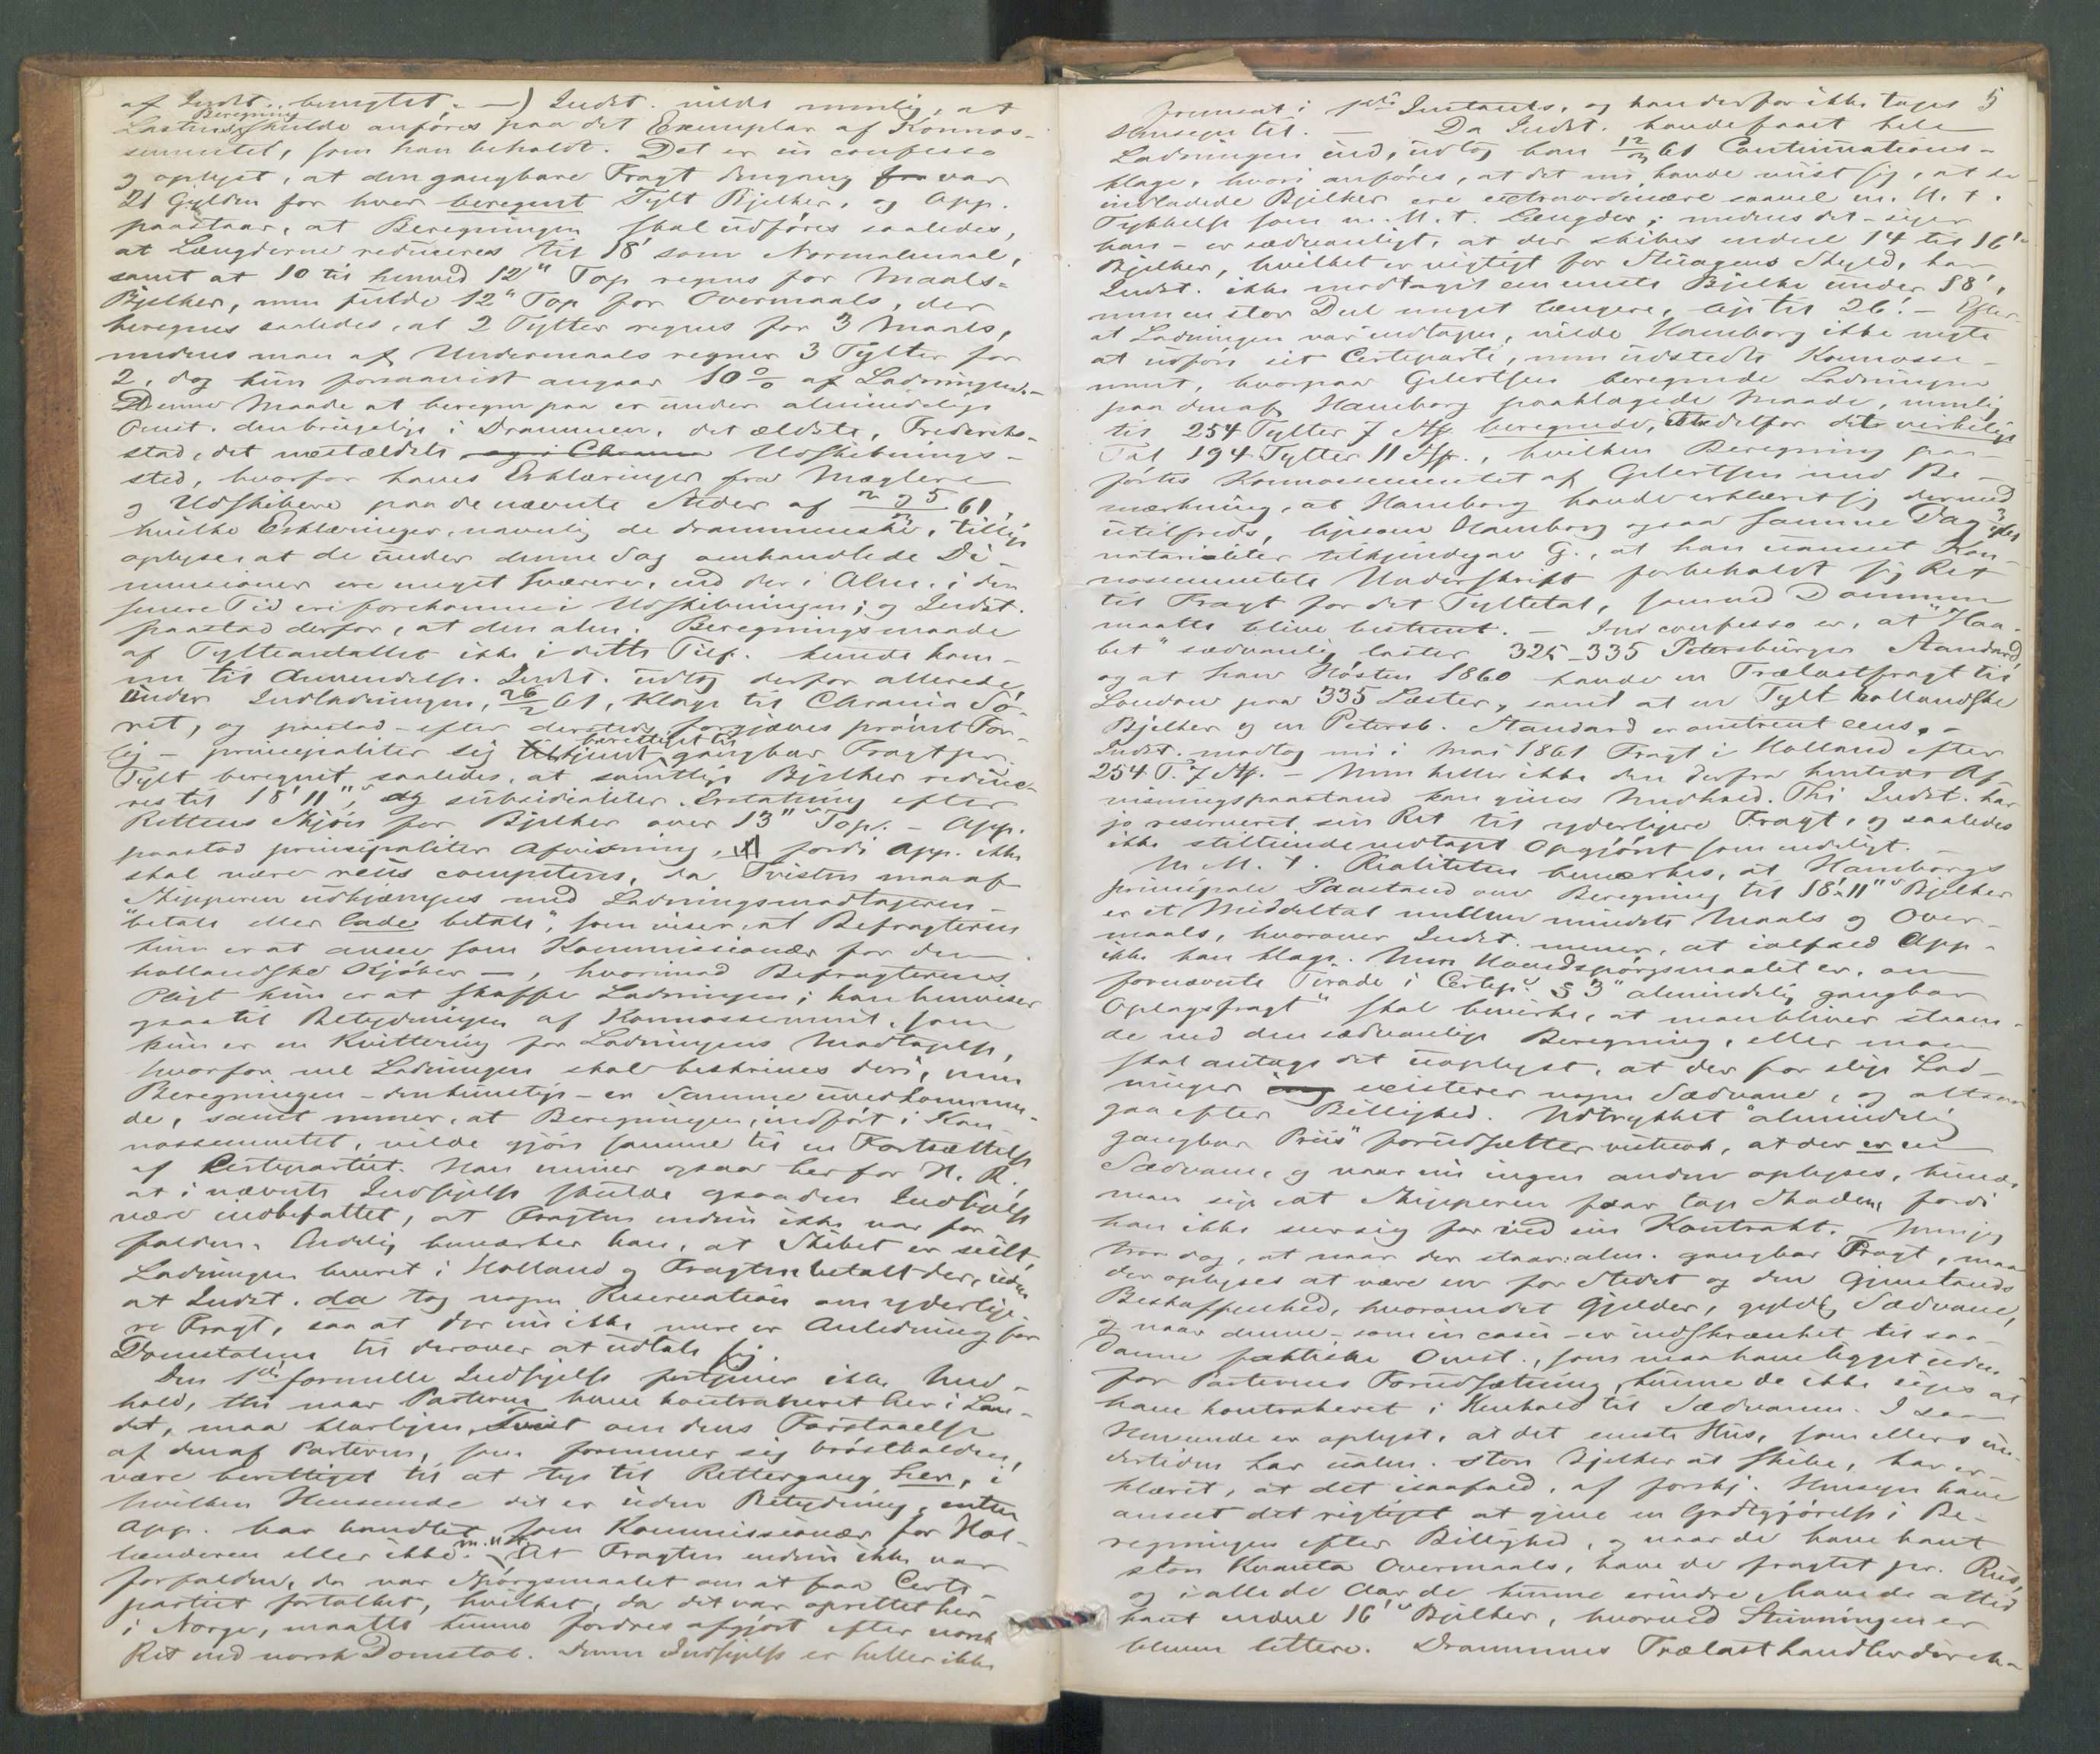 af Indst. benyttet. —) Indst. vilde nemlig, at
Beregning
Lastens skulde anføres paa det Exemplar af Konnos-
sementet, som han beholdt. Det er in confesso
og oplyst, at den gangbare Fragt dengang var
21 Gylden for hver beregnet Tylt Bjelker, og App.
paastaar, at Beregningen skal udføres saaledes,
at Længderne reduceres til 18' som Normalmaal,
samt at 10 til henved 12" Top regnes for Maals-
Bjelker, men fulde 12" Top for Overmaals, der
beregnes saaledes, at 2 Tylter regnes for 3 Maals,
medens man af Undermaals regner 3 Tylter for
2, dog kun forsaavidt angaar 10 % af Ladningen.—
Denne Maade at beregne paa er under almindelige
Omst. den brugelige i Drammen, det ældste, Frederiks-
stad, det næstældste Udskibnings-
sted, hvorfor haves Erklæringer fra Mæglere
og Udskibere paa de nævnte Steder af 61,
hvilke Erklæringer, navnlig de drammenske, tillige
oplyse, at de under denne Sag omhandlede Di-
mensioner ere meget sværere, end der i Alm. i den
senere Tid ere forekomne i Udskibningen; og Indst.
paastod derfor, at den alm. Beregningsmaade
af Tylteantallet ikke i dette Tilf. kunde kom-
me til Anvendelse. Indst. udtog derfor allerede
under Indladningen, 26/2 61, Klage til Chrania Sö-
ret, og paastod – efter forgjæves prøvet For-
berettiget til
lig – principaliter sig gangbar Fragt pr.
Tylt beregnet saaledes, at samtlige Bjelker reduce-
res til 18' 11", og subsidialiter Erstatning efter
Rettens Skjøn for Bjelker over 13" Top. – App.
paastod principaliter Afvisning, fordi App. ikke
skal være rette competens, da Tvisten maa af
Skipperen udkjæmpes med Ladningsmodtageren –
"betale eller lade betale", som viser, at Befragteren
kun er at ansee som Kommissionær for den
hollandske Kjøber –, hvorimod Befragterens
Pligt kun er at skaffe Ladningen; han henviser
ogsaa til Betydningen af Konnossement, som
kun er en Kvittering for Ladningens Modtagelse,
hvorfor vel Ladningen skal beskrives deri, men
Beregningen – den kunstige – er Samme uvedkommen-
de, samt mener, at Beregningen, indført i Kon-
nossementet, vilde gjøre samme til en Fortsættelse
af Certepartiet. Han mener ogsaa her for H. R.,
at i nævnte Indsigelse skulde ogsaa den Indsigelse
være indbefattet, at Fragten endnu ikke var for
falden. Endelig bemærker han, at Skibet er seilt,
Ladningen leveret i Holland og Fragten betalt der, uden
at Indst. da tog nogen Reservation om yderlige-
re Fragt, saa at der nu ikke mere er Anledning for
Domstolene til derover at udtale sig.
Den 1ste formelle Indsigelse fortjener ikke Med-
hold, thi naar Parterne have kontraheret her i Lan-
det, maa klarligen Tvist om dens Forstaaelse
af den af Parterne, som formener sig brøstholden,
være berettiget til at tye til Rettergang her, i
hvilken Henseende det er uden Betydning, enten
App. har handlet som Kommissionær for Hol-
m. H. t.
lænderen eller ikke. At Fragten endnu ikke var
forfalden, da var Spørgsmaalet om at faa Certe-
partiet fortolket, hvilket, da det var oprettet her
i Norge, maatte kunne fordres afgjort efter norsk
Ret ved norsk Domstol. Denne Indsigelse er heller ikke
5
fremsat i 1ste Instants, og kan derfor ikke tages
Hensyn til. — Da Indst. havde faaet hele
Ladningen ind, udtog han 12/3 61 Continuations-
klage, hvori anføres, at det nu havde viist sig, at de
indladede Bjelker ere extraordinære saavel m. H. t.
Tykkelse som m. H. t. Længder; medens det – siger
han – er sædvanligt, at der skibes endeel 14 til 16'
Bjelker, hvilket er vigtigt for Stuagens Skyld, har
Indst. ikke modtaget en eneste Bjelke under 18',
men en stor Deel meget længere, lige til 26'. – Efter
at Ladningen var indtagen, vilde Hamborg ikke negte
at udføre sit Certeparti, men udstedte Konnosse-
ment, hvorpaa Gilertsen beregnede Ladningen
paa den af Hamborg paaklagede Maade, nemlig
til 254 Tylter 7 Stk. beregnede, istedetfor det virkelige
Tal 194 Tylter 11 Stk., hvilken Beregning paa-
førtes Konnossementet af Gilertsen med Be-
mærkning, at Hamborg havde erklæret sig dermed
utilfreds, ligesom Hamborg ogsaa samme Dag
notarialiter tilkjendegav G., at han uanseet Kon-
nossementets Underskrift forbeholdt sig Ret
til Fragt for det Tyltetal, som ved Dommen
maatte blive bestemt. — In confesso er, at "Haa-
bet" sædvanlig laster 325–335 Petersburger Standard,
og at hun Høsten 1860 havde en Trælastfragt til
London paa 335 Læster, samt at en Tylt hollandske
Bjelker og en Petersb. Standard er omtrent eens. –
Indst. modtog nu i Mai 1861 Fragt i Holland efter
254 T. 7 Stk. – Men heller ikke den derfra hentede Af-
visningspaastand kan gives Medhold. Thi Indst. har
jo reserveret sin Ret til yderligere Fragt, og saaledes
ikke stiltiende vedtaget Opgjøret som endeligt.
M. H. t. Realiteten bemærkes, at Hamborgs
principale Paastand om Beregning til 18' 11" Bjelker
er et Middeltal mellem mindste Maals og Over-
maals, hvorover Indst. mener, at ialfald App.
ikke kan klage. Men Hovedspørgsmaalet er, om
fornævnte Tirade i Certep. § 3 "almindelig gangbar
Oplagsfragt" skal bevirke, at man bliver staaen-
de ved den sædvanlige Beregning, eller man
skal antage det uoplyst, at der for slige Lad-
ninger existerer nogen Sædvane, og altsaa
gaa efter Billighed. Udtrykket "almindelig
gangbar Priis" forudsætter vistnok, at der er en
Sædvane, og naar nu ingen anden oplyses, kunde
man sige at Skipperen faar tage Skaden, fordi
han ikke saae sig for ved sin Kontrakt. Men jeg
tror dog, at naar der staar: alm. gangbar Fragt, maa
der oplyses at være en for Stedet og den Gjenstands
Beskaffenhed, hvorom det gjelder, gyldig Sædvane,
og naar denne – som in casu – er indskrænket til saa-
danne faktiske Omst., som maa have ligget uden-
for Parternes Forudsætning, kunne de ikke siges at
have kontraheret i Henhold til Sædvanen. I saa
Henseende er oplyst, at det eneste Hus, som ellers un-
dertiden har ualm. store Bjelker at skibe, har er-
klæret, at det isaafald, af forskj. Hensyn have
anseet det rigtigst at give en Godtgjørelse i Be-
regningen efter Billighed, og naar de have havt
store Kvanta Overmaals, have de fragtet pr. Reis,
og i alle de Aar de kunne erindre, have de altid
havt endeel 16' Bjelker, hvorved Stuvningen er
bleven lettere. Drammens Trælasthandlerdirek-